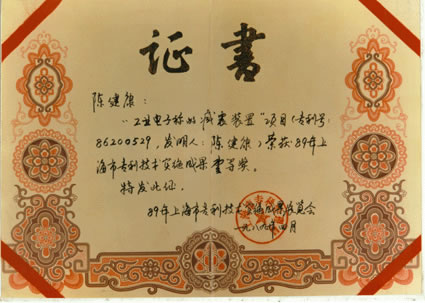 证書
陈健康：
"工业电子称的减差装置"项目（专利号：
86200529，发明人：陈健康）荣获'89年上
海市专利技术实施成果壹等奖。
特发此证。
89年上海市专利技术实施成果展览会
一九八九年四月